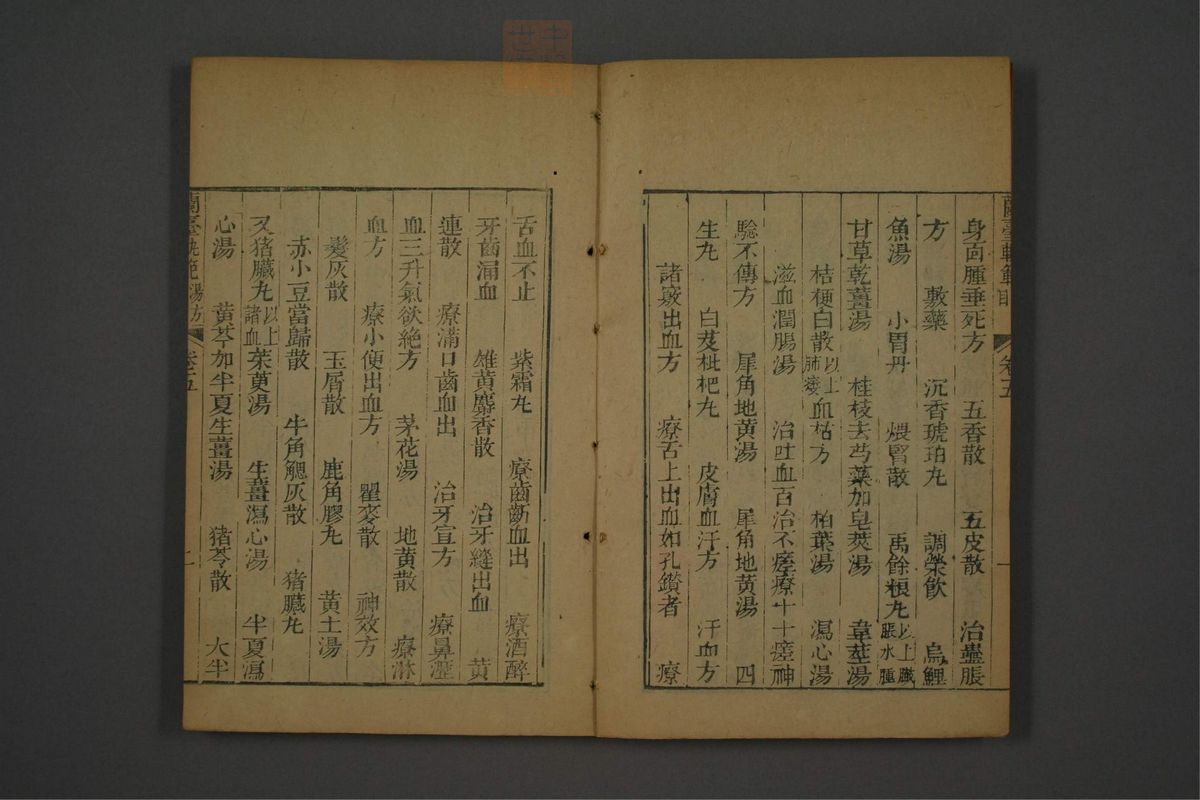 蘭臺軌範目 卷五 一
身面腫垂死方 五香散 五皮散 治蠱脹
方 敷藥 沉香琥珀丸 調榮飲 烏鯉
魚湯 小胃丹 煨腎散 禹餘粮丸 以上臌脹水腫
甘草乾薑湯 桂枝去芍藥加皂莢湯 葦莖湯
桔梗白散 以上肺痿 血枯方 柏葉湯 瀉心湯
滋血潤腸湯 治吐血百治不瘥療十十瘥神
驗不傳方 犀角地黃湯 犀角地黃湯 四
生丸 白芨枇杷丸 皮膚血汗方 汗血方
諸竅出血方 療舌上出血如孔鑽者 療
舌血不止 紫霜丸 療齒齗血出 療酒醉
牙齒漏血 雄黃麝香散 治牙縫出血 黃
連散 療滿口齒血出 治牙宣方 療鼻衄
血三升氣欲絕方 茅花湯 地黃散 療淋
血方 療小便出血方 瞿麥散 神效方
髮灰散 玉屑散 鹿角膠丸 黃土湯
赤小豆當歸散 牛角䚡灰散 猪臟丸
又猪臟丸 以上諸血 茱萸湯 生薑瀉心湯 半夏瀉
心湯 黃芩加半夏生薑湯 猪苓散 大半
卷五 二